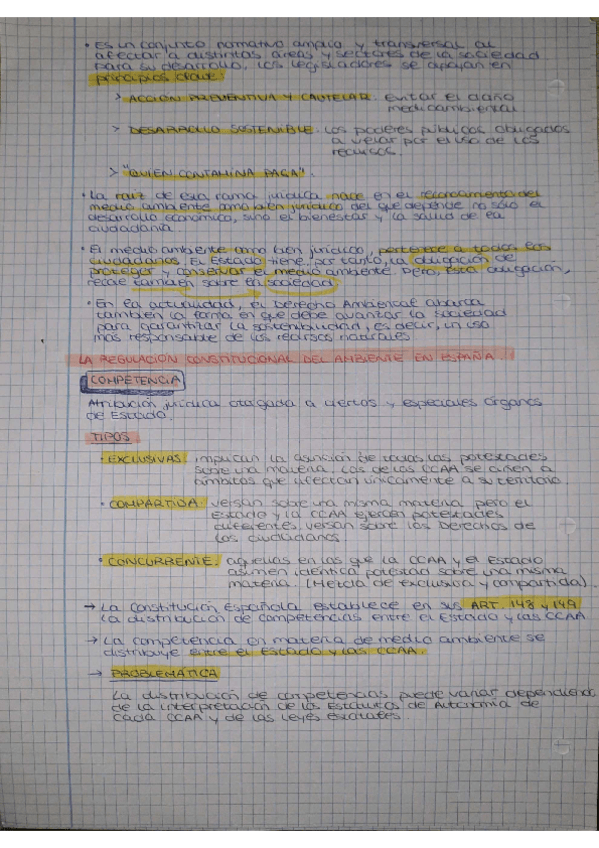 · Es un conjunto normativo amplio y transversal al
afectar a distintas áreas y sectores de la sociedad
para su desarrollo. Los legisladores se apoyan en
principios clave:
> ACCIÓN PREVENTIVA Y CAUTELAR. Evitar el daño
medioambiental
> DESARROLLO SOSTENIBLE. Los poderes públicos obligados
a velar por el uso de los
recursos.
> "QUIEN CONTAMINA PAGA".
· La raíz de esta rama jurídica nace en el reconocimiento del
medio ambiente como bien jurídico del que depende no sólo el
desarrollo económico, sino el bienestar y la salud de la
ciudadanía.
· El medio ambiente como bien jurídico, pertenece a todos los
ciudadanos. El Estado tiene, por tanto, la obligación de
proteger y conservar el medio ambiente. Pero, esta obligación,
recae también sobre la sociedad.
· En la actualidad, el Derecho Ambiental abarca
también la forma en que debe avanzar la sociedad
para garantizar la sostenibilidad, es decir, un uso
más responsable de los recursos naturales.
LA REGULACIÓN CONSTITUCIONAL DEL AMBIENTE EN ESPAÑA.
COMPETENCIA
Atribución jurídica otorgada a ciertos y especiales órganos
de Estado.
TIPOS
· EXCLUSIVAS. implican la asunción de todas las potestades
sobre una materia. Las de las CCAA se ciñen a
ámbitos que afectan únicamente a su territorio.
· COMPARTIDA. versan sobre una misma materia pero el
estado y la CCAA ejercen potestades
diferentes, versan sobre los Derechos de
los ciudadanos
· CONCURRENTE. aquellas en las que la CCAA y el Estado
asumen idéntica potestad sobre una misma
materia. (Mezcla de exclusiva y compartida).
→ La Constitución Española establece en sus ART. 148 y 149
la distribución de competencias entre el Estado y las CCAA
→ La competencia en materia de medio ambiente se
distribuye entre el Estado y las CCAA.
→ PROBLEMÁTICA
La distribución de competencias puede variar dependiendo
de la interpretación de los Estatutos de Autonomía de
cada CCAA y de las leyes estatales.